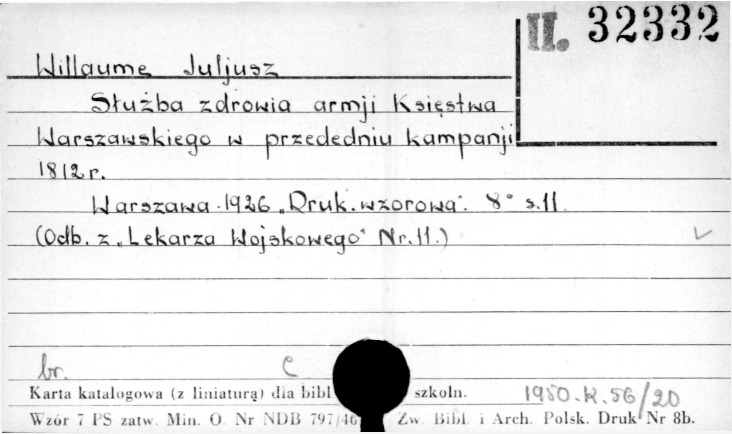 II. 32332
Willaume Juljusz
Służba zdrowia armji Księstwa
Warszawskiego w przededniu kampanji
1812 r.
Warszawa. 1926 „Druk. wzorowa". 8° s. 11.
(Odb. z „Lekarza Wojskowego" Nr. 11.)
br. C
Karta katalogowa (z liniaturą) dla bibl szkoln. 1950.K.56/20
Wzór 7 PS zatw. Min. O. Nr NDB 797/46 Zw. Bibl. i Arch. Polsk. Druk Nr 8b.